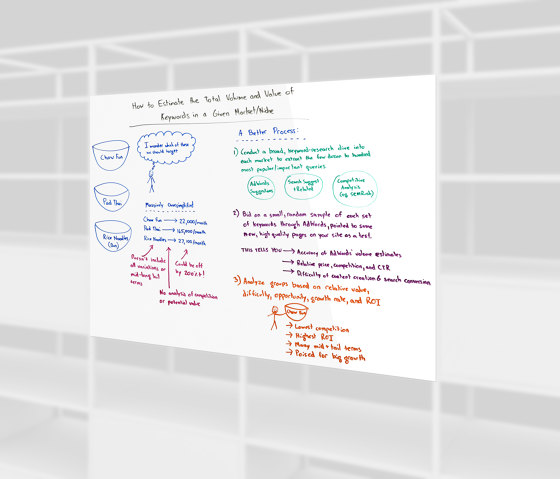 How to Estimate the Total Volume and Value of
Keywords in a Given Market/Niche
Chow Fun
Pad Thai
Rice Noodles
(Gen)
I wonder which of these
we should target
Massively Oversimplified
Chow Fun → 22,000/month
Pad Thai → 165,000/month
Rice Noodles → 27,100/month
Doesn't include
all variations or
mid-long tail
terms
Could be off
by 200%±!
No analysis of competition
or potential value
A Better Process:
1) Conduct a broad, keyword-research dive into
each market to extract the few dozen to hundred
most popular/important queries.
AdWords
Suggestions
Search Suggest
+ Related
Competitive
Analysis
(e.g. SEMRush)
2) Bid on a small, random sample of each set
of keywords through AdWords, pointed to some
new, high quality pages on your site as a test.
THIS TELLS YOU → Accuracy of AdWords' volume estimates
→ Relative price, competition, and CTR
→ Difficulty of content creation & search conversion
3) Analyze groups based on relative value,
difficulty, opportunity, growth rate, and ROI
Chow Fun
→ Lowest competition
→ Highest ROI
→ Many mid + tail terms
→ Poised for big growth